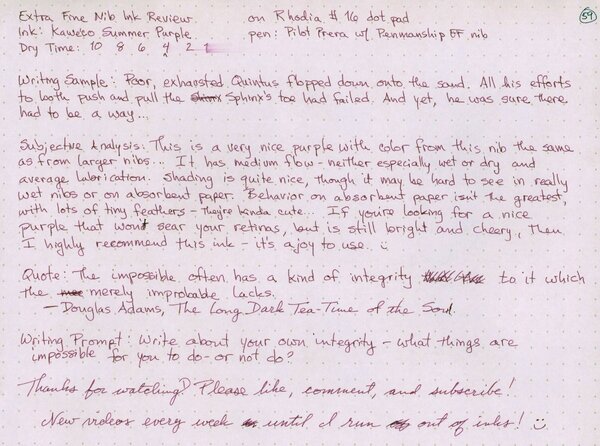 Extra Fine Nib Ink Review on Rhodia #16 dot pad 59
Ink: Kaweco Summer Purple pen: Pilot Prera w/ Penmanship EF nib
Dry Time: 10 8 6 4 2 1
Writing Sample: Poor, exhausted Quintus flopped down onto the sand. All his efforts
to both push and pull the Sphinx's toe had failed. And yet, he was sure there
had to be a way...
Subjective Analysis: This is a very nice purple with color from this nib the same
as from larger nibs... It has medium flow - neither especially wet or dry and
average lubrication. Shading is quite nice, though it may be hard to see in really
wet nibs or on absorbent paper. Behavior on absorbent paper isn't the greatest,
with lots of tiny feathers - they're kinda cute... If you're looking for a nice
purple that won't sear your retinas, but is still bright and cheery, then
I highly recommend this ink - it's a joy to use. :)
Quote: The impossible often has a kind of integrity to it which
the merely improbable lacks.
- Douglas Adams, The Long Dark Tea-Time of the Soul
Writing Prompt: Write about your own integrity - what things are
impossible for you to do - or not do?
Thanks for watching! Please like, comment, and subscribe!
New videos every week until I run out of inks! :)